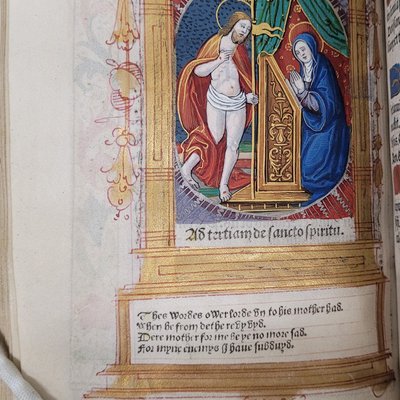 Ad tertiam de sancto spiritu.
Thes wordes ower lorde vn to his mother had.
When he from dethe revyvyd.
Dere mother for me be ye no more sad.
For myne enemys I haue subduyd.